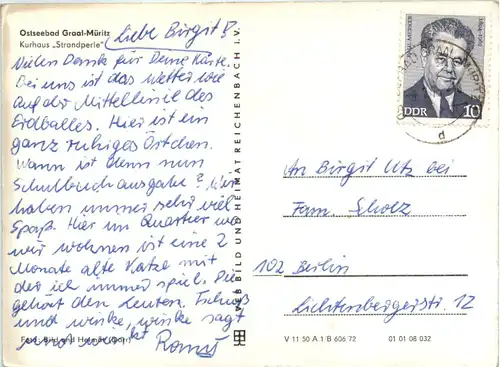 Ostseebad Graal-Müritz
Kurhaus „Strandperle"
Liebe Birgit!
Vielen Dank für Deine Karte.
Bei uns ist das Wetter wie
auf der Mittellinie des
Erdballes. Hier ist ein
ganz ruhiges Örtchen.
Wann ist denn nun
Schulbuchausgabe? Wir
haben immer sehr viel
Spaß. Hier im Quartier wo
wir wohnen ist eine 2
Monate alte Katze mit
der ich immer spiel. Die
gehört den Leuten. Tschüß
und winke, winke sagt
Foto: Bild und Heimat
VEB BILD UND HEIMAT REICHENBACH i. V.
DDR
10
An Birgit Utz bei
Fam. Scholz
102 Berlin
Lichtenbergerstr. 12
V 11 50 A 1/B 606 72
01 01 08 032